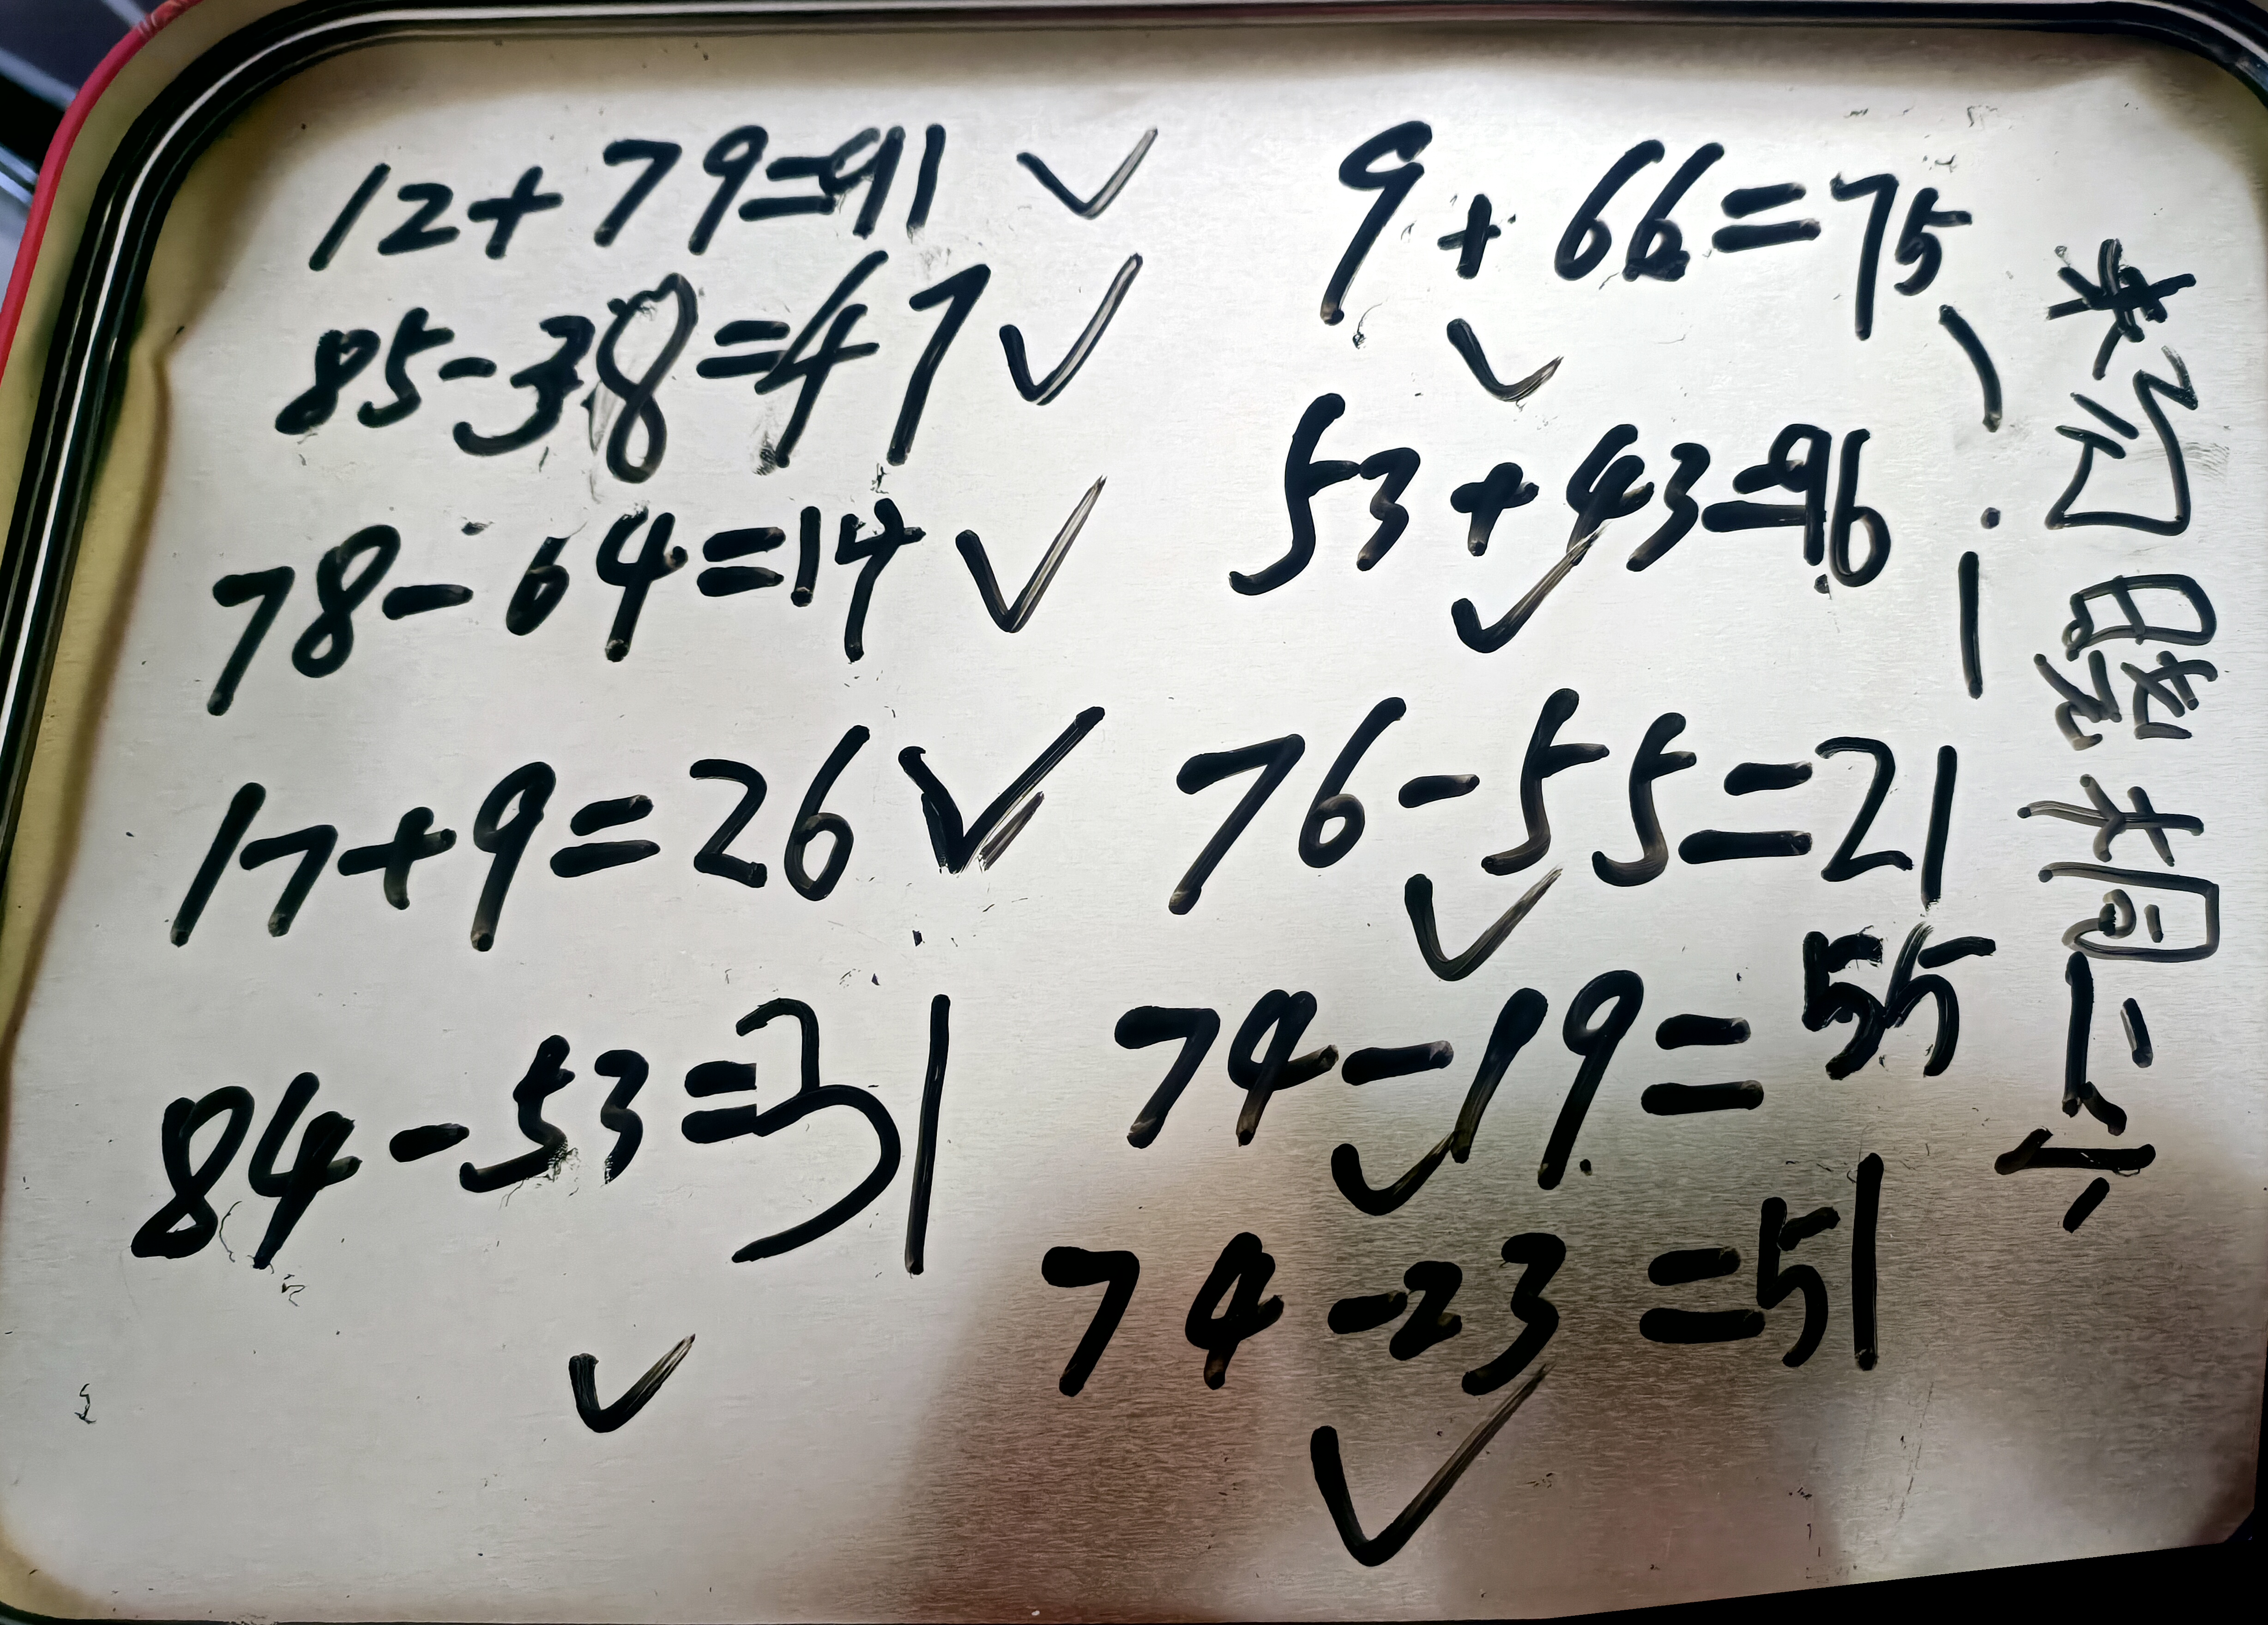 12+79=91 ✓
85-38=47 ✓
78-64=14 ✓
17+9=26 ✓
84-53=31
✓
9+66=75
✓
53+43=96
✓
76-55=21
✓
74-19=55
✓
74-23=51
✓